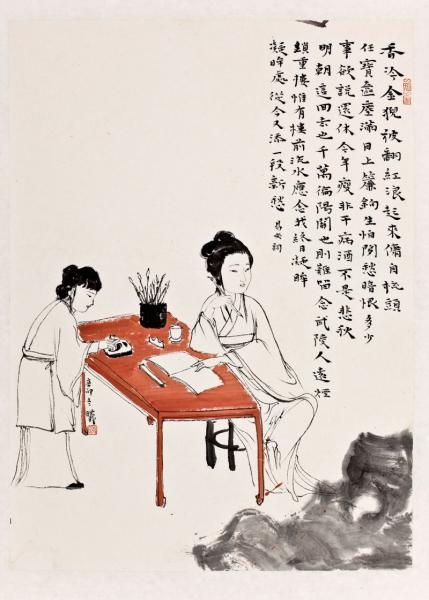 香冷金猊被翻紅浪起來慵自梳頭
任寶奩塵滿日上簾鉤生怕閒愁暗恨多少
事欲說還休今年瘦非干病酒不是悲秋
明朝這回去也千萬徧陽關也則難留念武陵人遠煙
鎖重樓惟有樓前流水應念我終日凝眸
凝眸處從今又添一段新愁 易安詞
辛卯冬